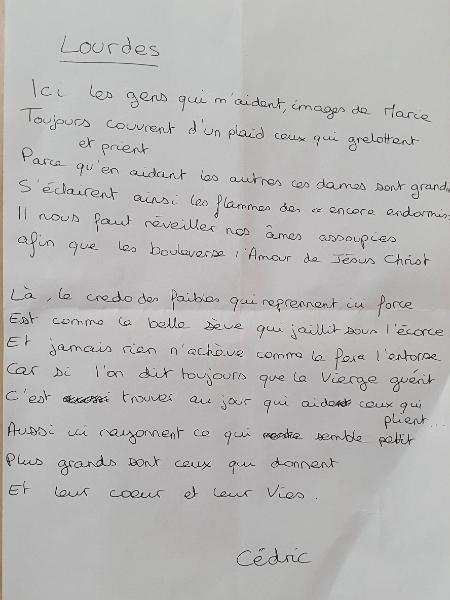 Lourdes
Ici les gens qui m'aident, images de Marie
Toujours couvrent d'un plaid ceux qui grelottent
et prient
Parce qu'en aidant les autres ces dames sont grandi
S'éclairent ainsi les flammes des « encore endormis
Il nous faut réveiller nos âmes assoupies
afin que les bouleverse l'Amour de Jésus Christ
Là, le credo des faibles qui reprennent ici force
Est comme la belle sève qui jaillit sous l'écorce
Et jamais rien n'achève comme le fera l'entorse
Car si l'on dit toujours que la Vierge guérit
C'est trouver au jour qui aident ceux qui
plient...
Aussi ici rayonnent ce qui semble petit
Plus grands sont ceux qui donnent
Et leur coeur et leur Vies.
Cédric